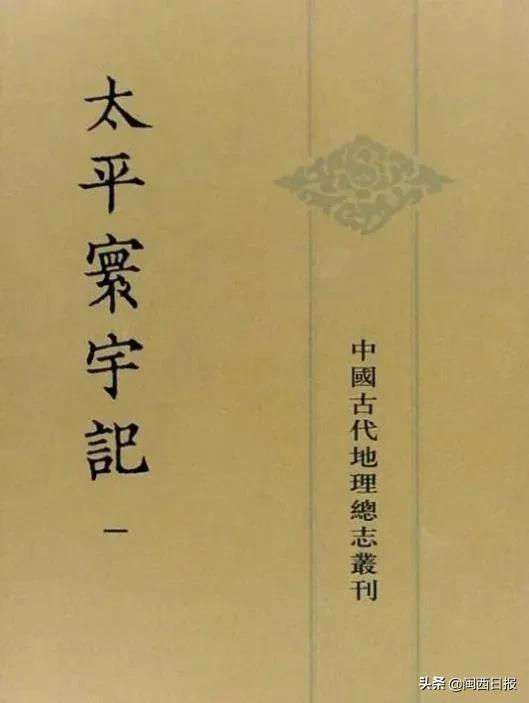 太平寰宇記
一
中國古代地理總志叢刊
头条 @闽西日报